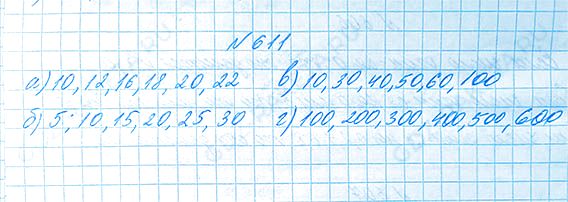 №611
а) 10, 12, 16, 18, 20, 22 в) 10, 30, 40, 50, 60, 100
б) 5; 10, 15, 20, 25, 30 г) 100, 200, 300, 400, 500, 600